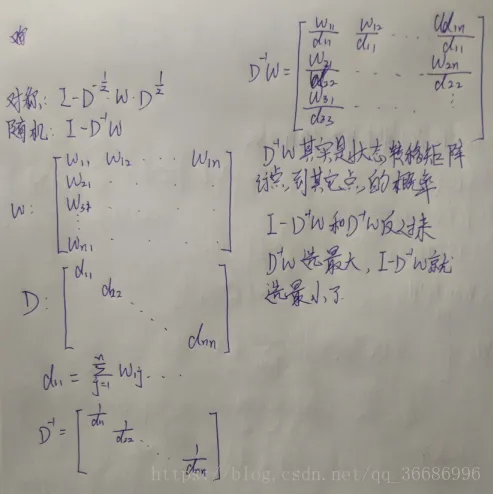 对称: I-D^{-\frac{1}{2}}·W·D^{\frac{1}{2}}
随机: I-D^{-1}W
W: [W11 W12 ··· W1n
W21 · · ·
W3
⋮
Wn1 · · ·]
D: [d11
d22
⋱
dnn]
d11 = \sum_{j=1}^{n} W1j ···
D^{-1} = [\frac{1}{d11}
\frac{1}{d22}
⋱
\frac{1}{dnn}]
D^{-1}W = [\frac{W11}{d11} \frac{W12}{d11} ··· \frac{W1n}{d11}
\frac{W21}{d22} ··· \frac{W2n}{d22}
\frac{W31}{d33} ⋮]
D^{-1}W其实是状态转移矩阵
点到其它点的概率
I-D^{-1}W和D^{-1}W反过来
D^{-1}W选最大,I-D^{-1}W就
选最小了
https://blog.csdn.net/qq_36686996